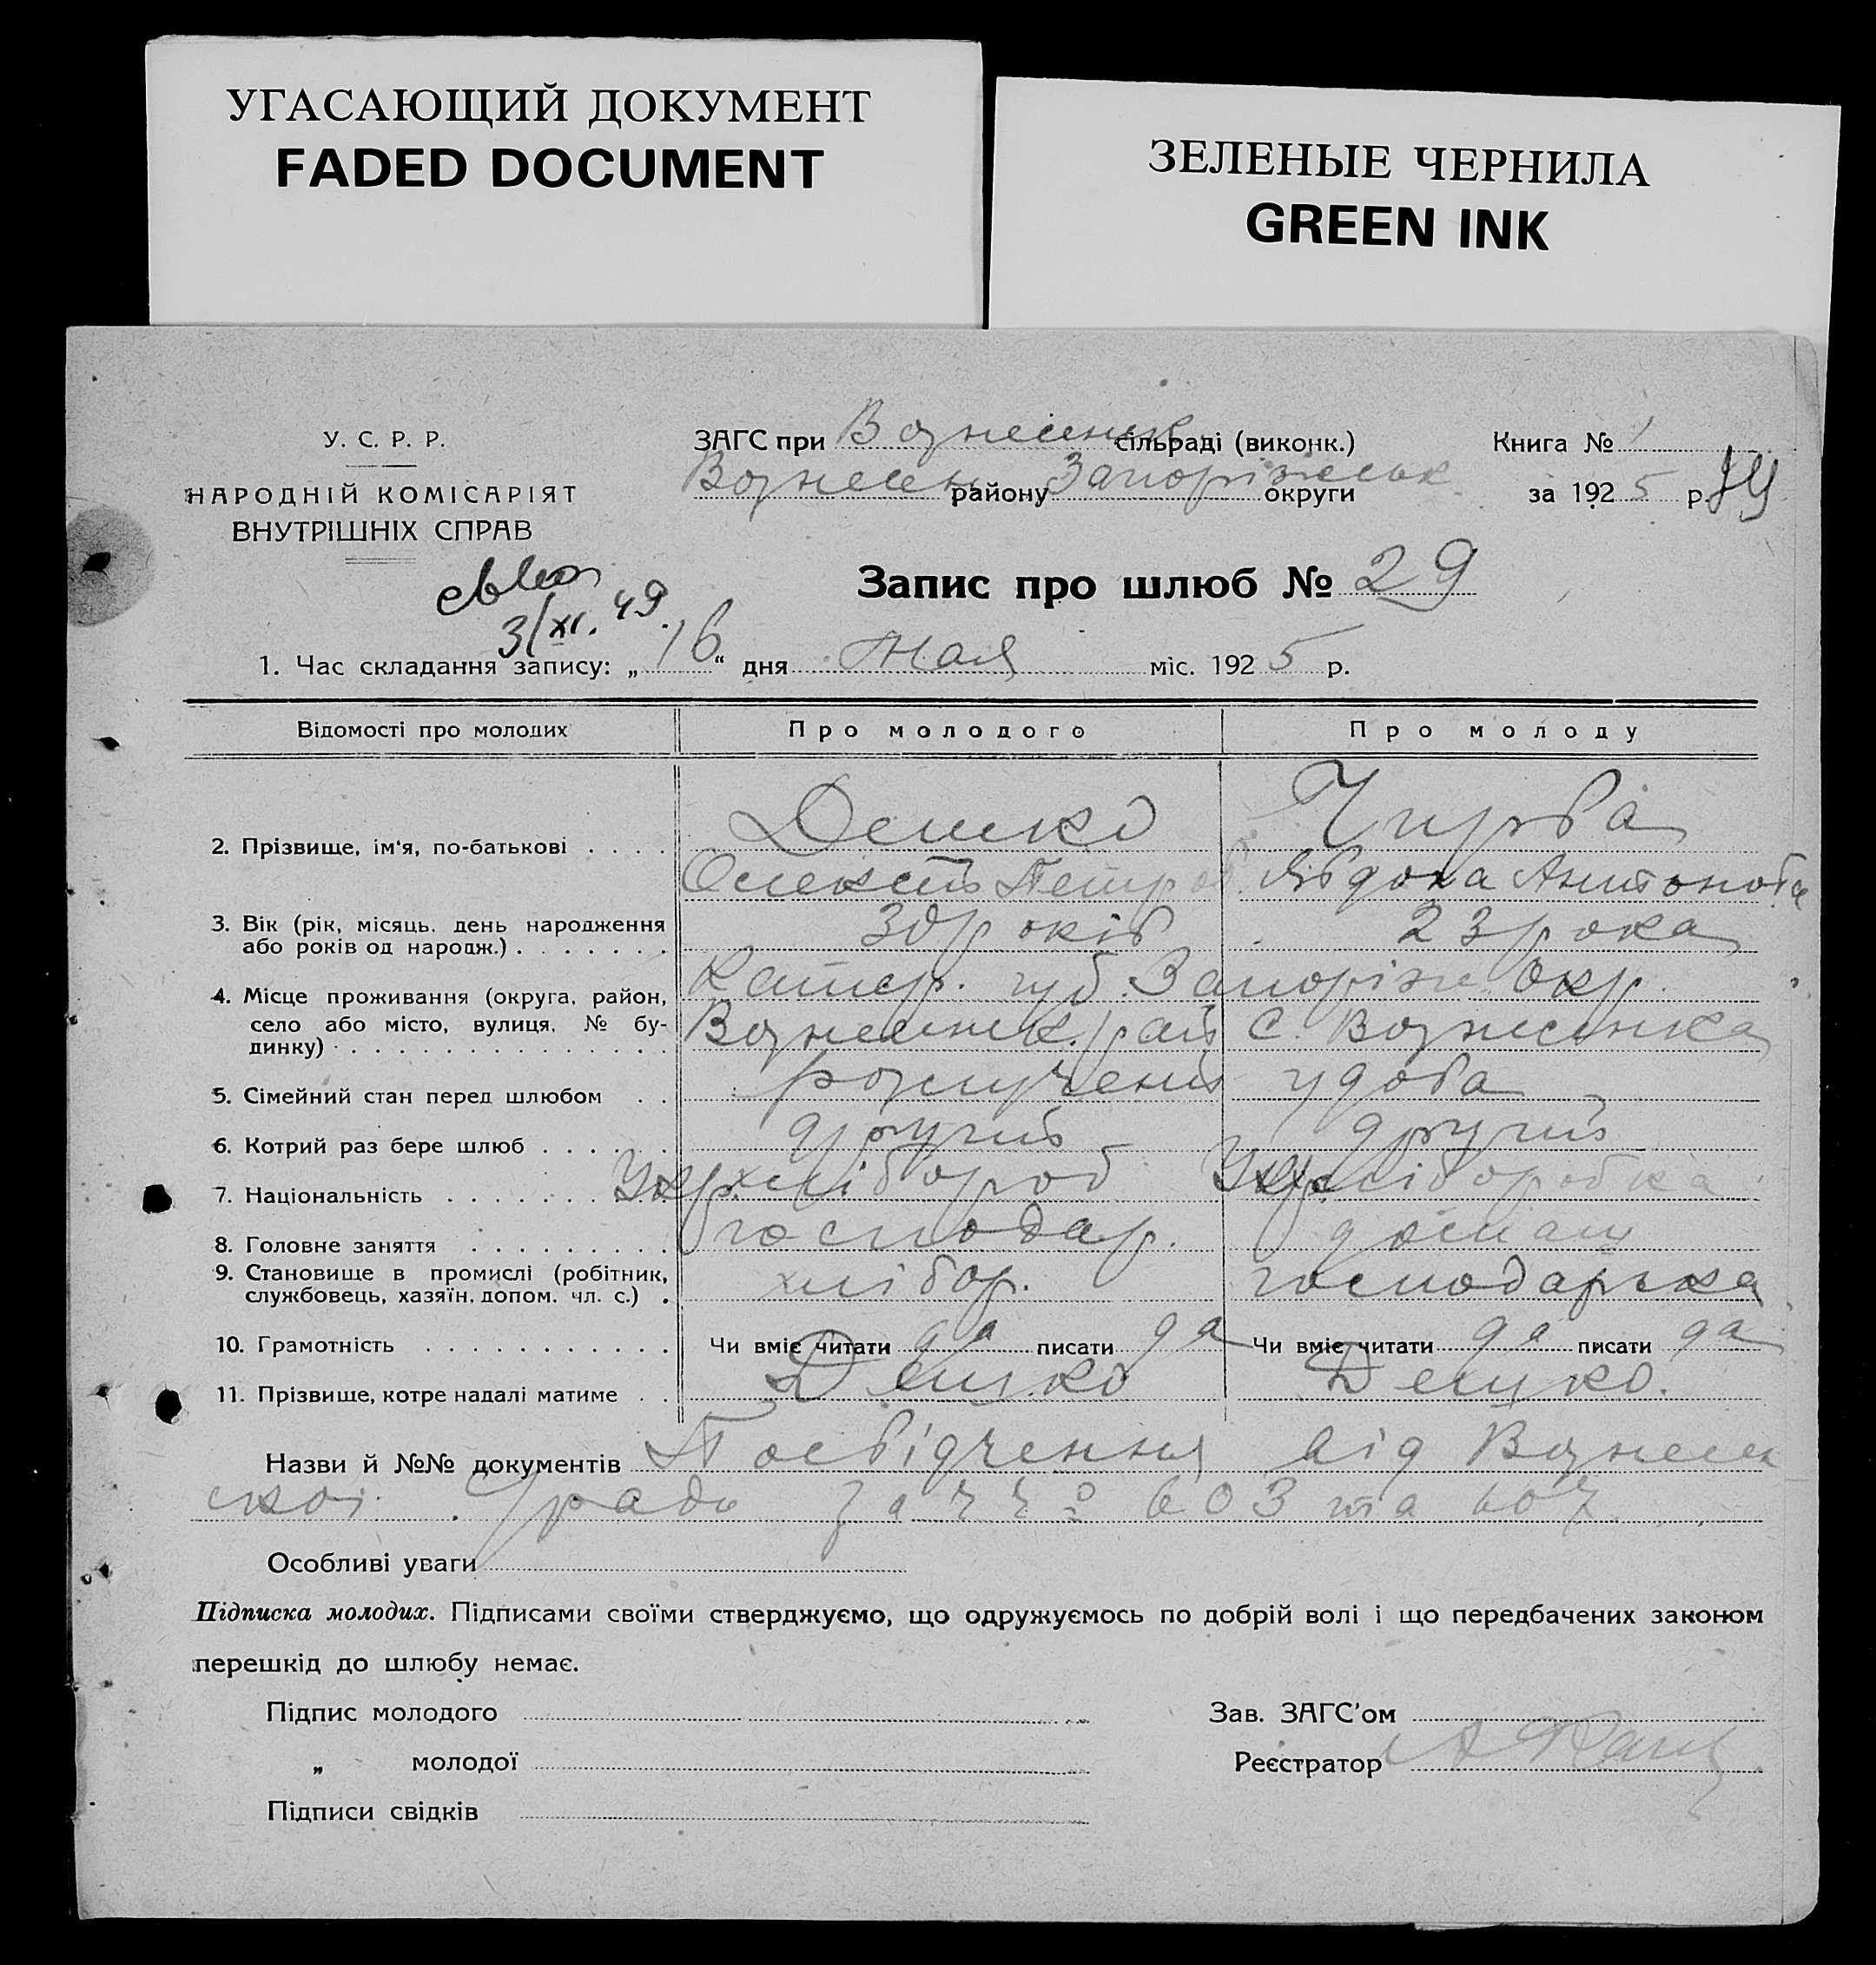 УГАСАЮЩИЙ ДОКУМЕНТ
FADED DOCUMENT
ЗЕЛЕНЫЕ ЧЕРНИЛА
GREEN INK
У. С. Р. Р.
НАРОДНІЙ КОМІСАРІЯТ
ВНУТРІШНІХ СПРАВ
ЗАГС при Вознесенск сільраді (виконк.) Книга № 1
Вознесен району Запоріжськ округи за 1925 р.
3/XI. 49.
Запис про шлюб № 29
1. Час складання запису: „16“ дня Мая міс. 1925 р.
Відомості про молодих Про молодого Про молоду
2. Прізвище, ім'я, по-батькові . . . . Дешко Чирва
Олексій Петров. Явдоха Антонова
3. Вік (рік, місяць, день народження
або років од народж.) . . . . . . . 30 років 23 рока
4. Місце проживання (округа, район,
село або місто, вулиця, № бу-
динку) . . . . . . . . . . . . . .
Катер. губ. Запоріж. Окр.
Вознесенск. рай С. Вознесенка
5. Сімейний стан перед шлюбом . . розлучений удова
6. Котрий раз бере шлюб . . . . . . другий другий
7. Національність . . . . . . . Укр. хлібороб Укр. хліборобка
8. Головне заняття . . . . . . . . . господар. домашн
9. Становище в промислі (робітник,
службовець, хазяїн, допом. чл. с.) . хлібор. господарька
10. Грамотність . . . . . . . . . . . Чи вміє читати да писати да Чи вміє читати да писати да
11. Прізвище, котре надалі матиме . . Дешко Дешко.
Назви й №№ документів Посвідчення від Вознесен
ської С/ради за 603 та 607
Особливі уваги
Підписка молодих. Підписами своїми стверджуємо, що одружуємось по добрій волі і що передбачених законом
перешкід до шлюбу немає.
Підпис молодого Зав. ЗАГС'ом
„ молодої Реєстратор
Підписи свідків